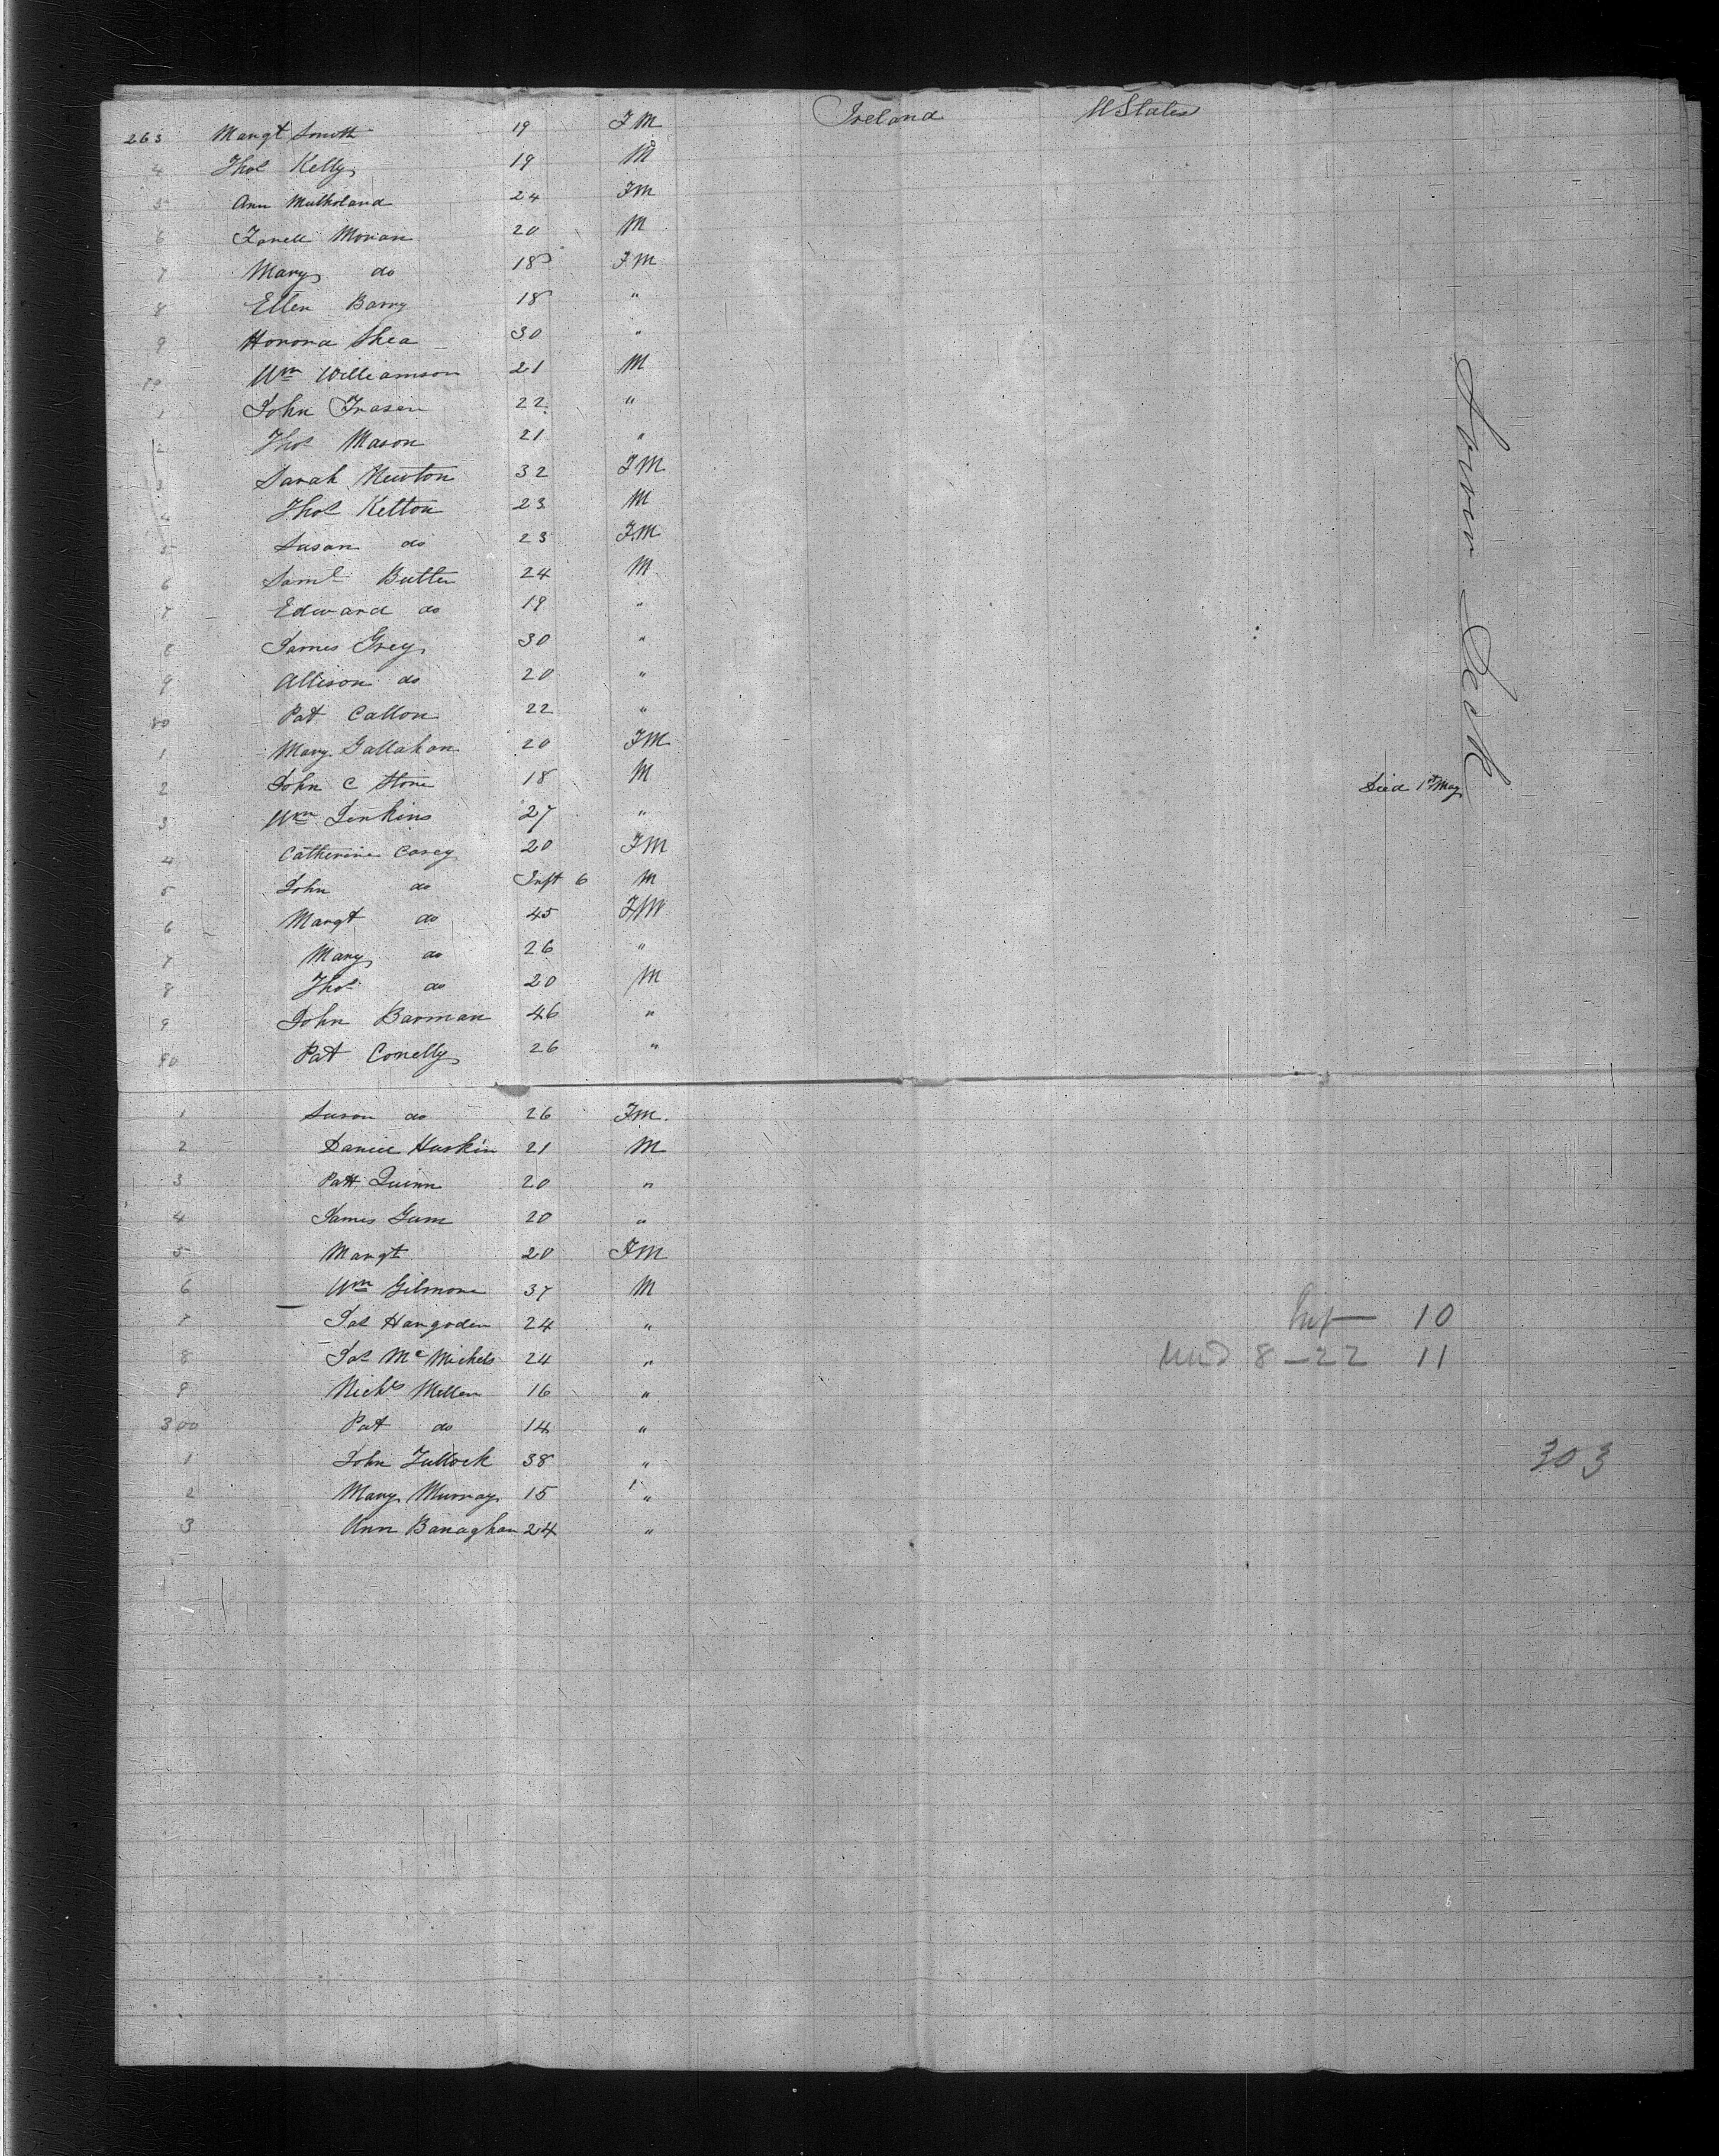 263 Margt Smith 19 FM Ireland U States
4 Thos Kelly 19 M
5 Ann Mulholand 24 FM
6 Farell Moran 20 M
7 Mary do 18 FM
8 Ellen Barry 18 "
9 Honora Shea 30 "
70 Wm Williamson 21 M
1 John Fraser 22 "
2 Thos Mason 21 "
3 Sarah Newton 32 FM
4 Thos Kelton 23 M
5 Susan do 23 FM
6 Saml Butler 24 M
7 Edward do 19 "
8 James Grey 30 "
9 Allison do 20 "
80 Pat Callon 22 "
1 Mary Gallahan 20 FM
2 John C Stone 18 M Died 1st May
3 Wm Jenkins 27 "
4 Catherine Casey 20 FM
5 John do Inft 6 M
6 Margt do 45 FM
7 Mary do 26 "
8 Thos do 20 M
9 John Barman 46 "
90 Pat Conelly 26 "
1 Susan do 26 FM
2 Daniel Huskin 21 M
3 Patt Quinn 20 "
4 James Gum 20 "
5 Margt 20 FM
6 Wm Gilmore 37 M
7 Jas Hangoden 24 " Inf 10
8 Jas McMichels 24 " und 8 - 22 11
9 Nichs Mellen 16 "
300 Pat do 14 "
1 John Tullock 38 " 303
2 Mary Murray 15 "
3 Ann Banaghan 24 "
Lower Deck